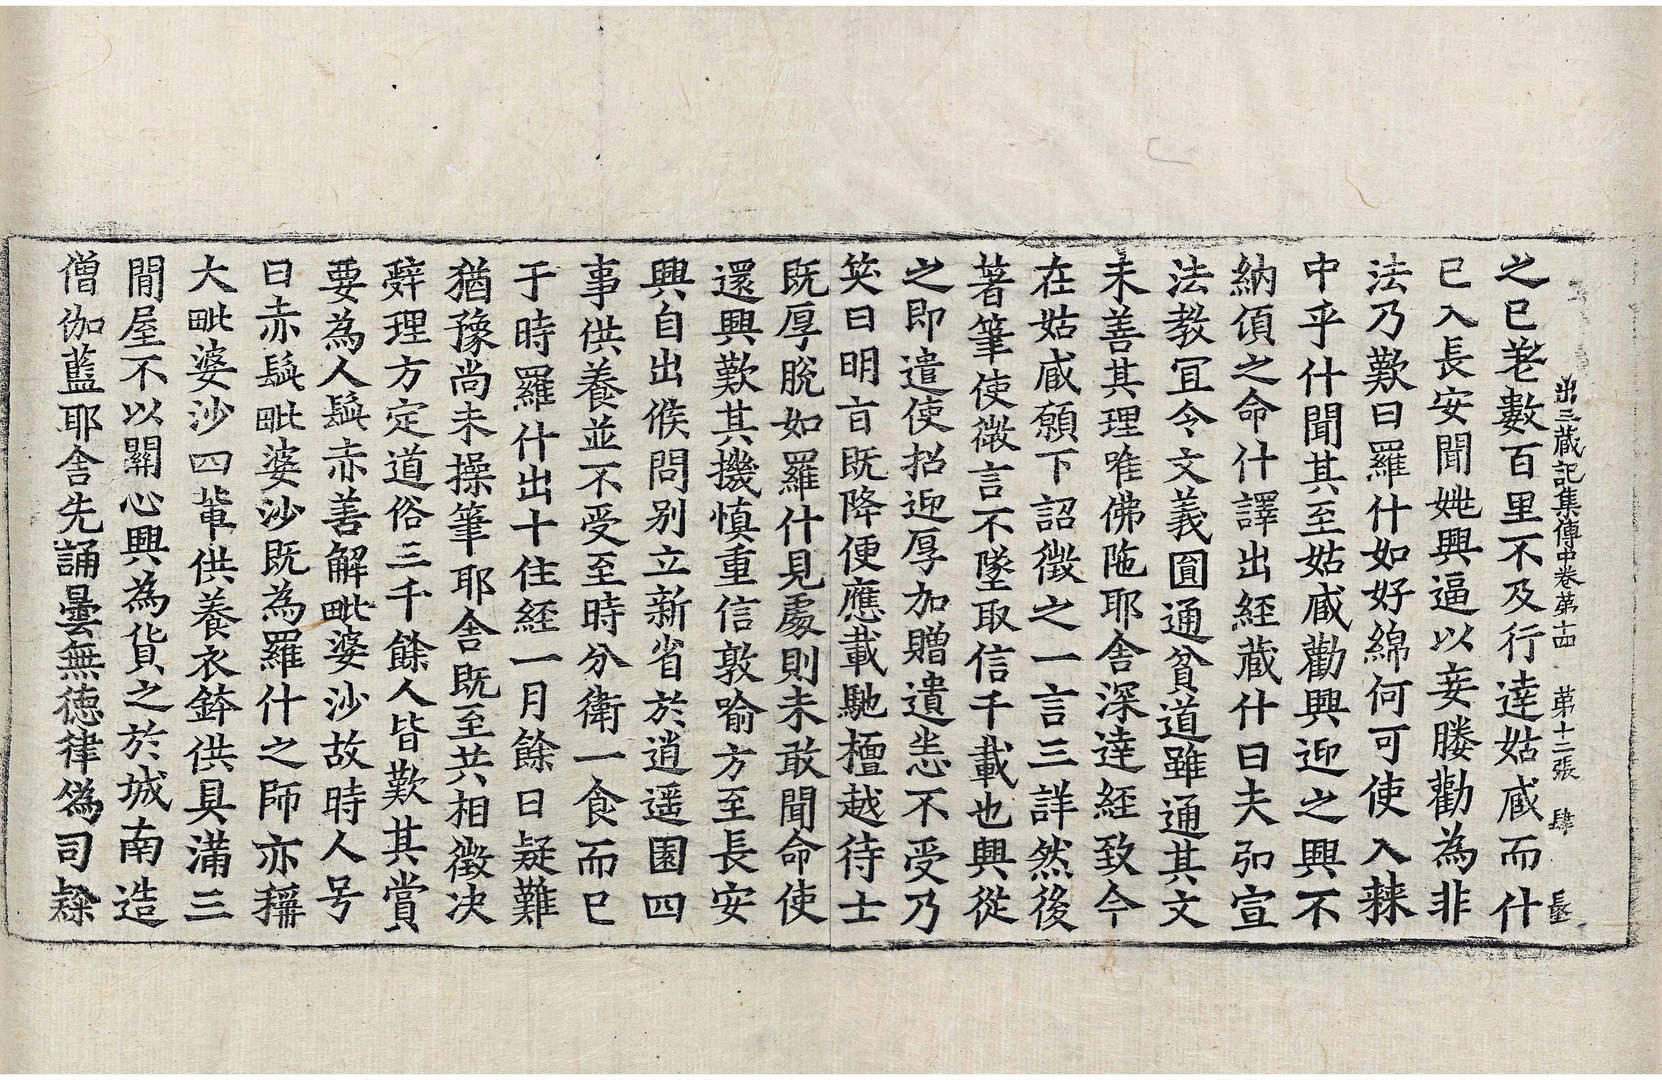 出三藏記集傳中卷第十四　第十二張　肆
之已差數百里不及行達姑臧而什
已入長安聞姚興逼以妾媵勸為非
法乃歎曰羅什如好綿何可使入棘
中乎什聞其至姑臧勸興迎之興不
納頃之命什譯出經藏什曰夫弘宣
法教冝令文義圎通貧道雖通其文
未善其理唯佛陁耶舍深達經致今
在姑臧願下詔徵之一言三詳然後
著筆使微言不墜取信千載也興從
之即遣使招迎厚加贈遺悉不受乃
笑曰明㫖既降便應載馳檀越待士
既厚脫如羅什見處則未敢聞命使
還興歎其機慎重信敦喻方至長安
興自出候問別立新省於逍遥園四
事供養並不受至時分衛一食而已
于時羅什出十住經一月餘日疑難
猶豫尚未操筆耶舍既至共相徵决
辭理方定道俗三千餘人皆歎其賞
要為人髭赤善解毗婆沙故時人号
曰赤髭毗婆沙既為羅什之師亦稱
大毗婆沙四輩供養衣鉢供具滿三
閒屋不以關心興為貨之於城南造
僧伽藍耶舍先誦曇無德律偽司隸